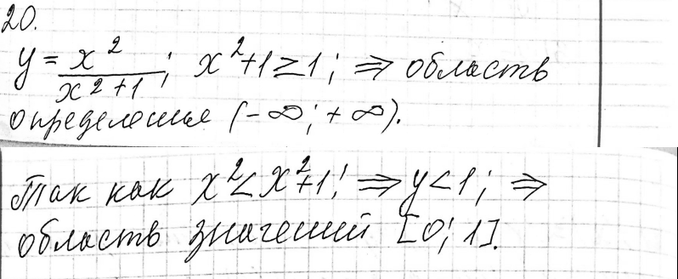 20.
y = x²/(x²+1); x²+1 ≥ 1; ⇒ область
определения (-∞; +∞).
Так как x² < x²+1; ⇒ y < 1; ⇒
область значений [0; 1].